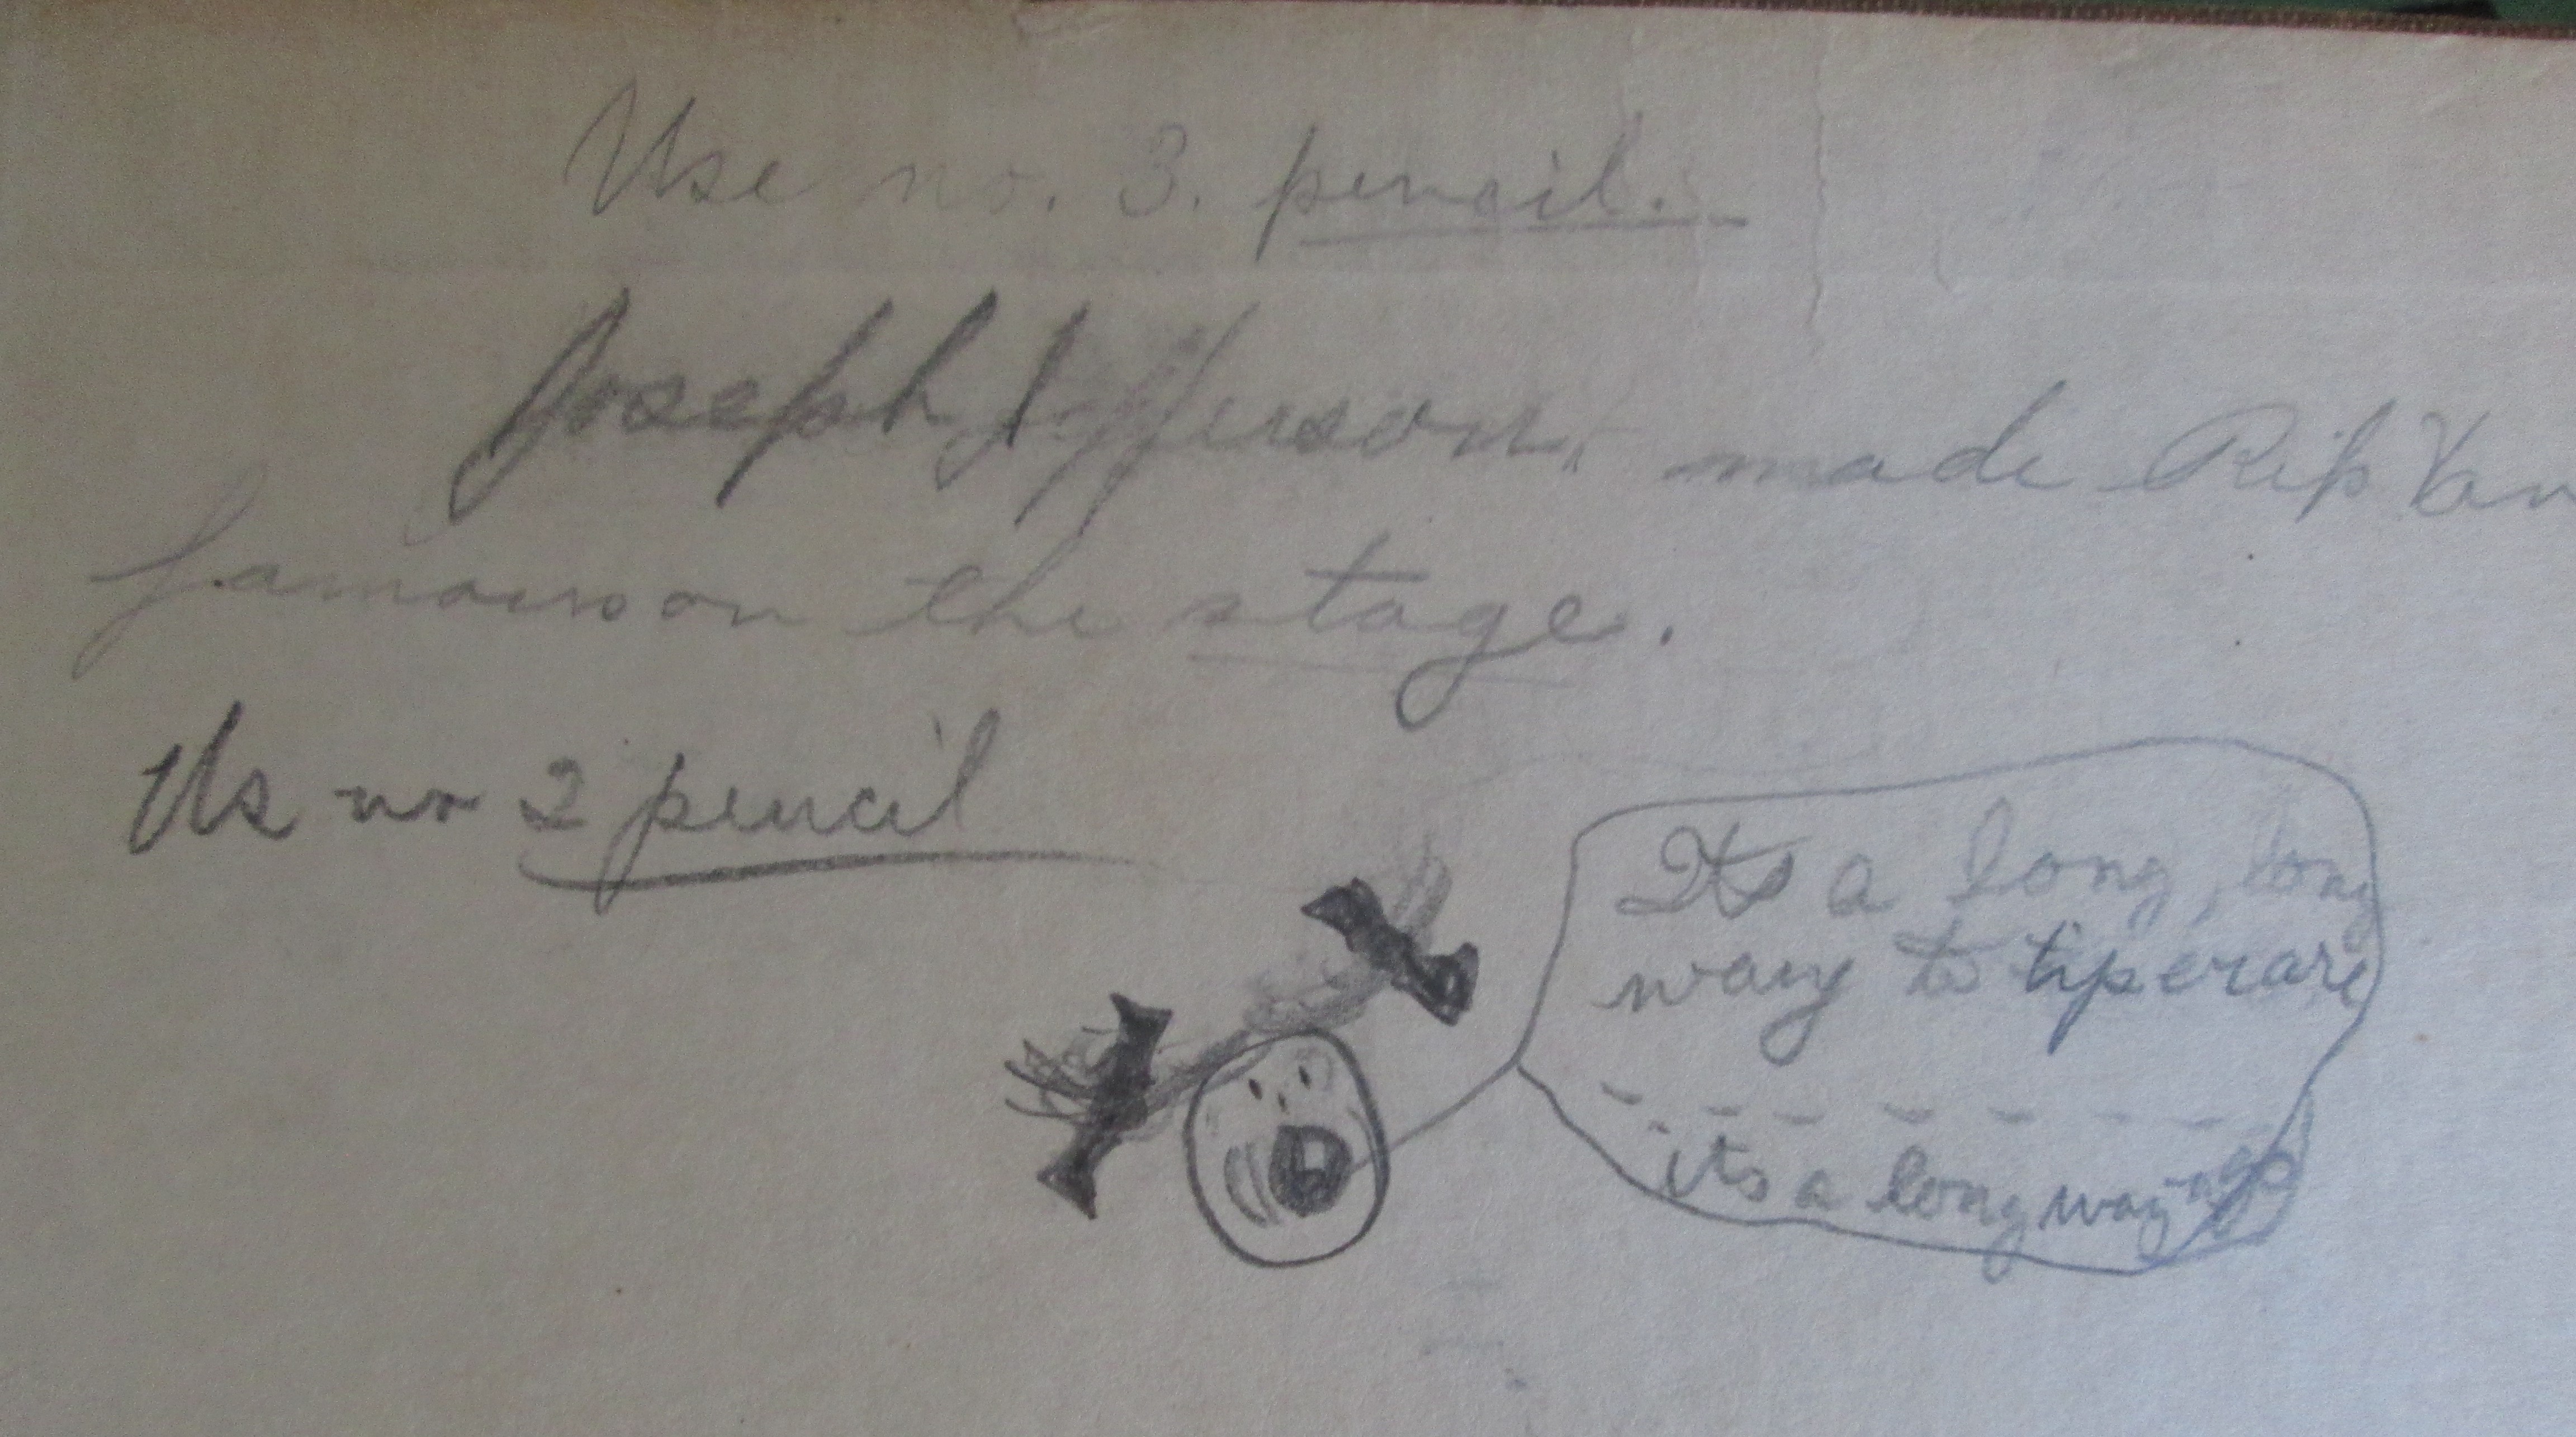 Use no. 3. pencil.
Joseph Jefferson, made Rip Van
famous on the stage.
Us no 2 pencil
Its a long, long
way to tiperare
its a long way